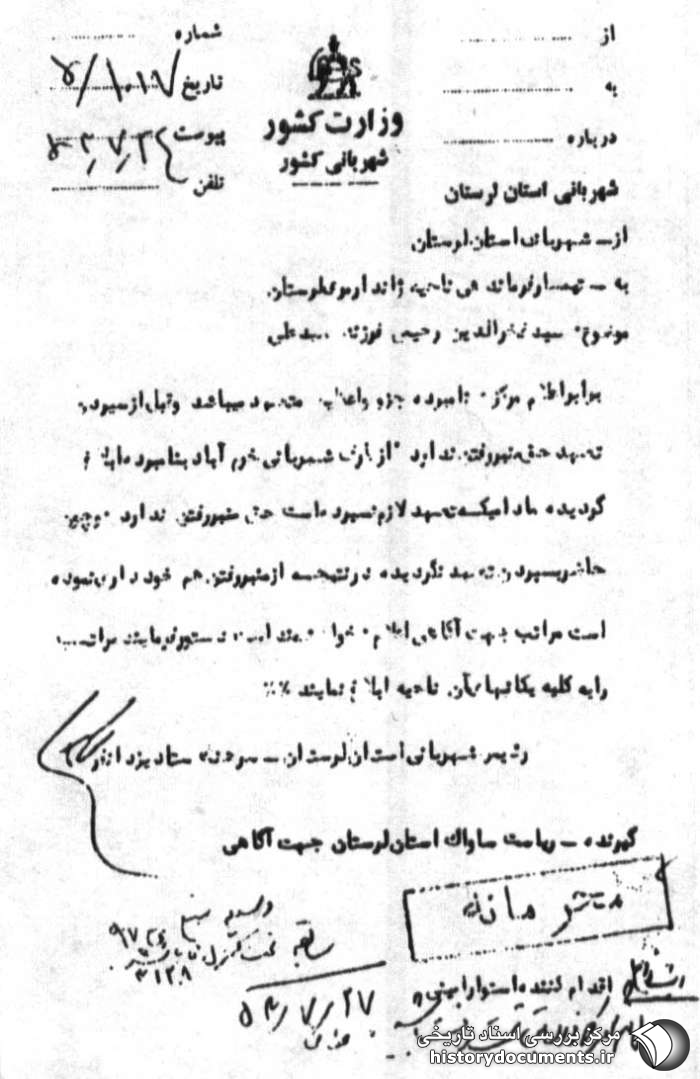 از
به
درباره
وزارت کشور
شهربانی کشور
شماره
تاریخ
پیوست
تلفن
شهربانی استان لرستان
از ـ شهربانی استان لرستان
به ـ تیمسار فرماندهی ناحیه ژاندارمری لرستان
موضوع سید فخرالدین رحیمی فرزند سیدعلی
برابر اعلام مرکز نامبرده جزو وعاظ میباشد و قبل از سپردن
تعهد حق منبر رفتن ندارد از طرف شهربانی خرم آباد بنامبرده ابلاغ
گردیده مادامیکه تعهد لازم نسپرده است حق منبر رفتن ندارد و چون
حاضر بسپردن تعهد نگردیده در نتیجه از منبر رفتن هم خودداری نموده
است مراتب جهت آگاهی اعلام خواهشمند است دستور فرمایند مراتب
را به کلیه یکانهای آن ناحیه ابلاغ نمایند %%
رئیس شهربانی استان لرستان ـ سرهنگ ستاد
گیرنده ـ ریاست ساواک استان لرستان جهت آگاهی
محرمانه
سابقه
۵۴/۷/۲۷
اقدام کننده استوار
مرکز بررسی اسناد تاریخی
historydocuments.ir